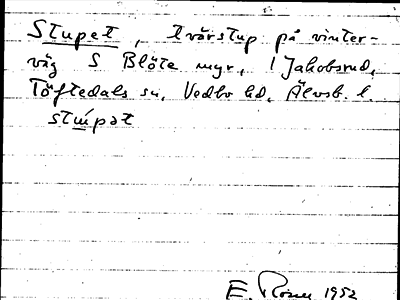 Stupet, tvärstup på vinter-
väg S Blöte myr, i Jakobsrud,
Töftedals sn, Vedbo hd, Älvsb. l.
stu̱pət
E. Rosen 1952